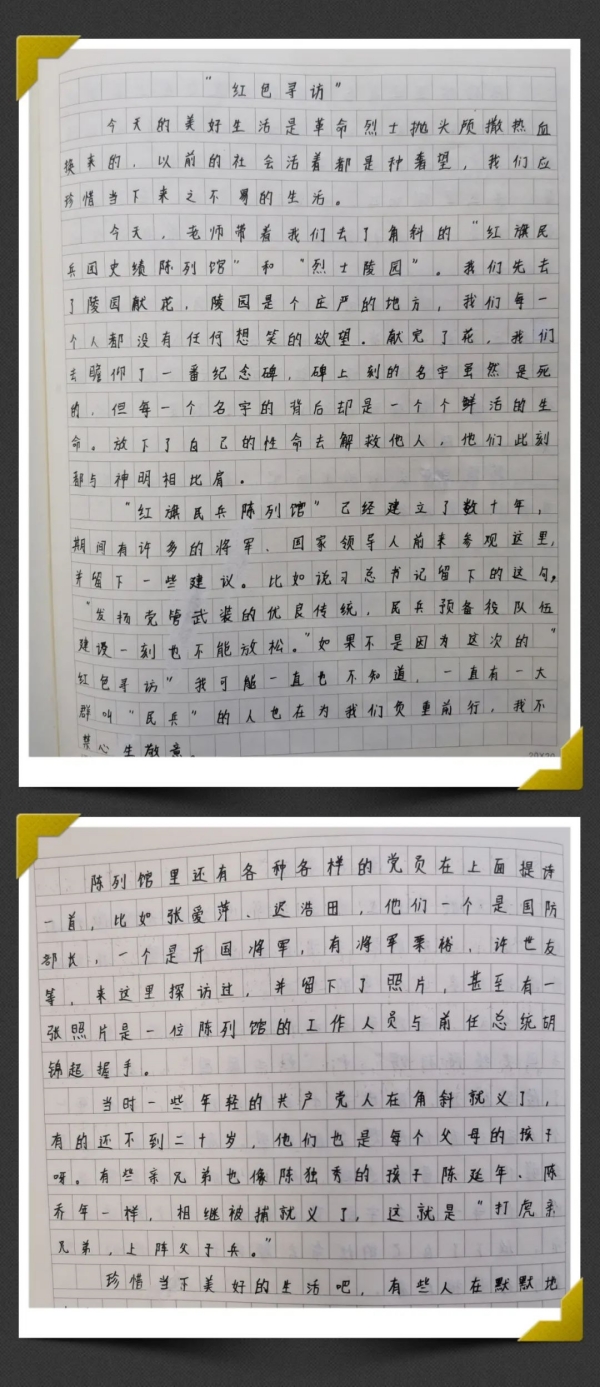 “红色寻访”
今天的美好生活是革命烈士抛头颅撒热血
换来的，以前的社会活着都是种奢望，我们应
珍惜当下来之不易的生活。
今天，老师带着我们去了角斜的“红旗民
兵团史绩陈列馆”和“烈士陵园”。我们先去
了陵园献花，陵园是个庄严的地方，我们每一
个人都没有任何想笑的欲望。献完了花，我们
去瞻仰了一番纪念碑，碑上刻的名字虽然是死
的，但每一个名字的背后却是一个个鲜活的生
命。放下了自己的性命去解救他人，他们此刻
都与神明相比肩。
“红旗民兵陈列馆”已经建立了数十年，
期间有许多的将军、国家领导人前来参观这里，
并留下一些建议。比如说习总书记留下的这句，
“发扬党管武装的优良传统，民兵预备役队伍
建设一刻也不能放松。”如果不是因为这次的“
红色寻访”我可能一直也不知道，一直有一大
群叫“民兵”的人也在为我们负重前行，我不
禁心生敬意。
陈列馆里还有各种各样的党员在上面提诗
一首，比如张爱萍、迟浩田，他们一个是国防
部长，一个是开国将军，有将军粟裕，许世友
等，来这里探访过，并留下了照片，甚至有一
张照片是一位陈列馆的工作人员与前任总统胡
锦超握手。
当时一些年轻的共产党人在角斜就义了，
有的还不到二十岁，他们也是每个父母的孩子
呀。有些亲兄弟也像陈独秀的孩子陈延年、陈
乔年一样，相继被捕就义了，这就是“打虎亲
兄弟，上阵父子兵。”
珍惜当下美好的生活吧，有些人在默默地